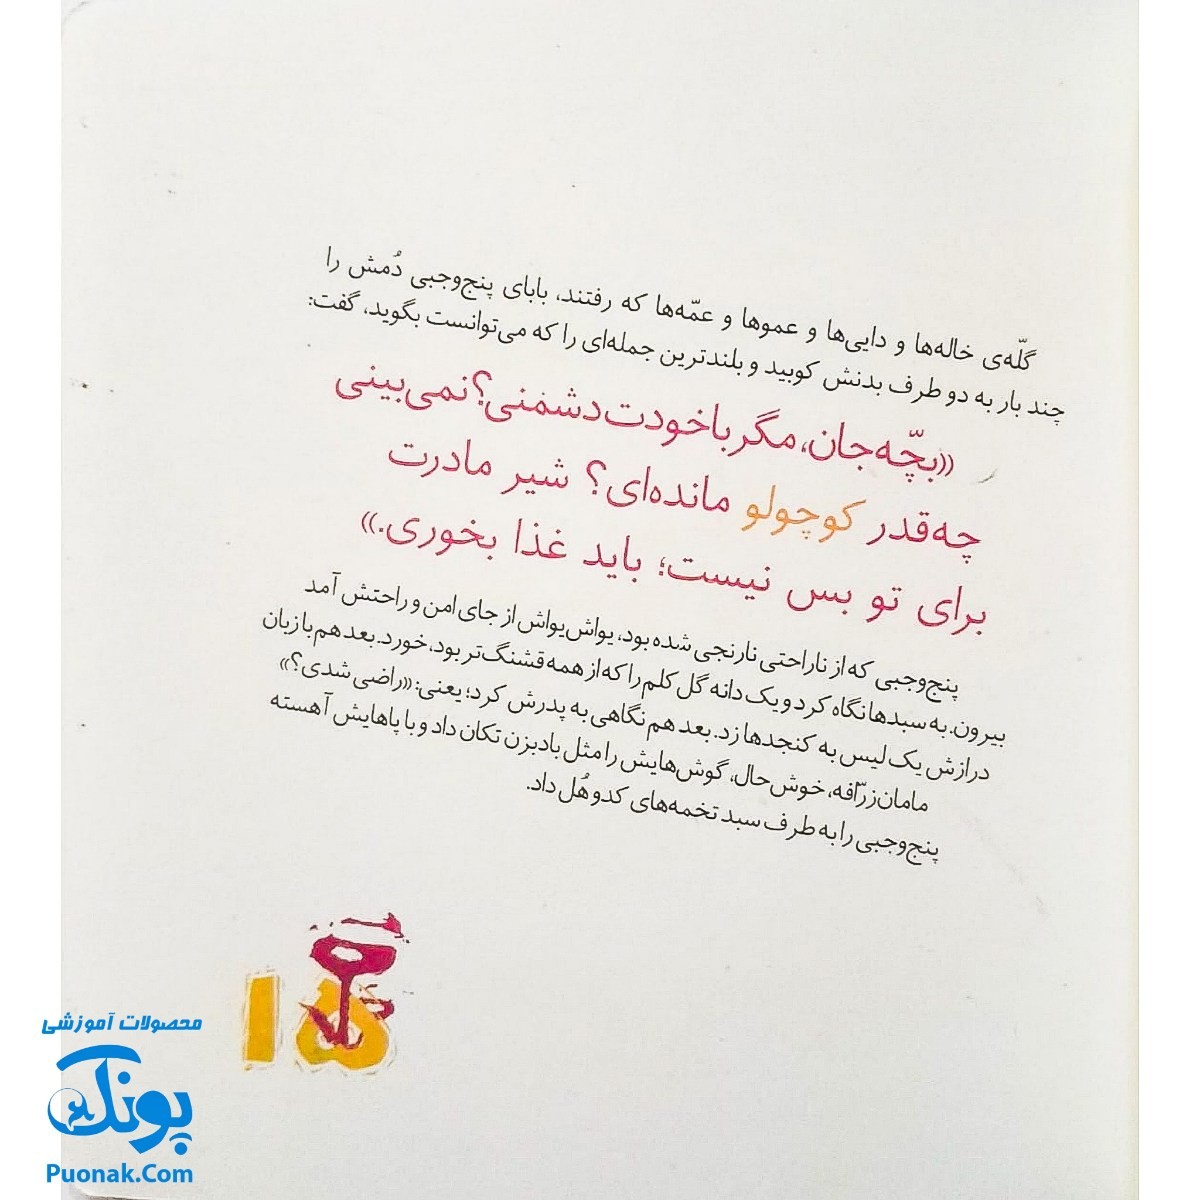 گلّه‌ی خاله‌ها و دایی‌ها و عموها و عمّه‌ها که رفتند، بابای پنج‌وجبی دُمش را
چند بار به دو طرف بدنش کوبید و بلندترین جمله‌ای را که می‌توانست بگوید، گفت:
«بچّه‌جان، مگر با خودت دشمنی؟ نمی‌بینی
چه‌قدر کوچولو مانده‌ای؟ شیر مادرت
برای تو بس نیست؛ باید غذا بخوری.»
پنج‌وجبی که از ناراحتی نارنجی شده بود، یواش‌یواش از جای امن و راحتش آمد
بیرون. به سبدها نگاه کرد و یک دانه گل کلم را که از همه قشنگ‌تر بود، خورد. بعد هم با زبان
درازش یک لیس به کنجدها زد. بعد هم نگاهی به پدرش کرد؛ یعنی: «راضی شدی؟»
مامان‌زرّافه، خوش‌حال، گوش‌هایش را مثل بادبزن تکان داد و با پاهایش آهسته
پنج‌وجبی را به طرف سبد تخمه‌های کدو هُل داد.
۱۵
محصولات آموزشی
پونک
Puonak.Com